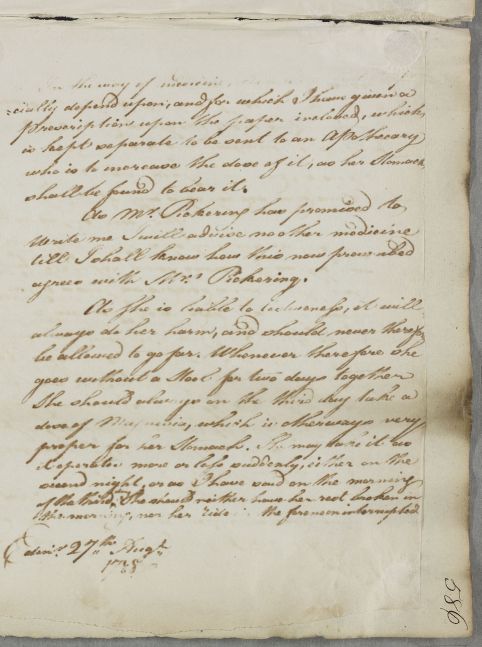 In the way of medicine,
cially depend upon, and for which I have given a
Prescription upon the paper inclosed, which
is kept separate to be sent to an Apothecary
who is to increase the dose of it, as her Stomach
shall be found to bear it.
As Mr. Pickering has promised to
write me I will advise no other medicine
till I shall know how this now prescribed
agrees with Mrs. Pickering.
As She is liable to costiveness, it will
always do her harm, and should never therefore
be allowed to go far. Whenever therefore she
goes without a Stool for two days together
She should always on the third day take a
dose of Magnesia, which is otherways very
proper for her Stomach. She may take it as
it operates more or less suddenly, either on the
second night, or as I have said on the morning
of the third. She should neither have her rest broken in
the morning, nor her ride in the forenoon interrupted
Edinr. 27th. Augt.
586